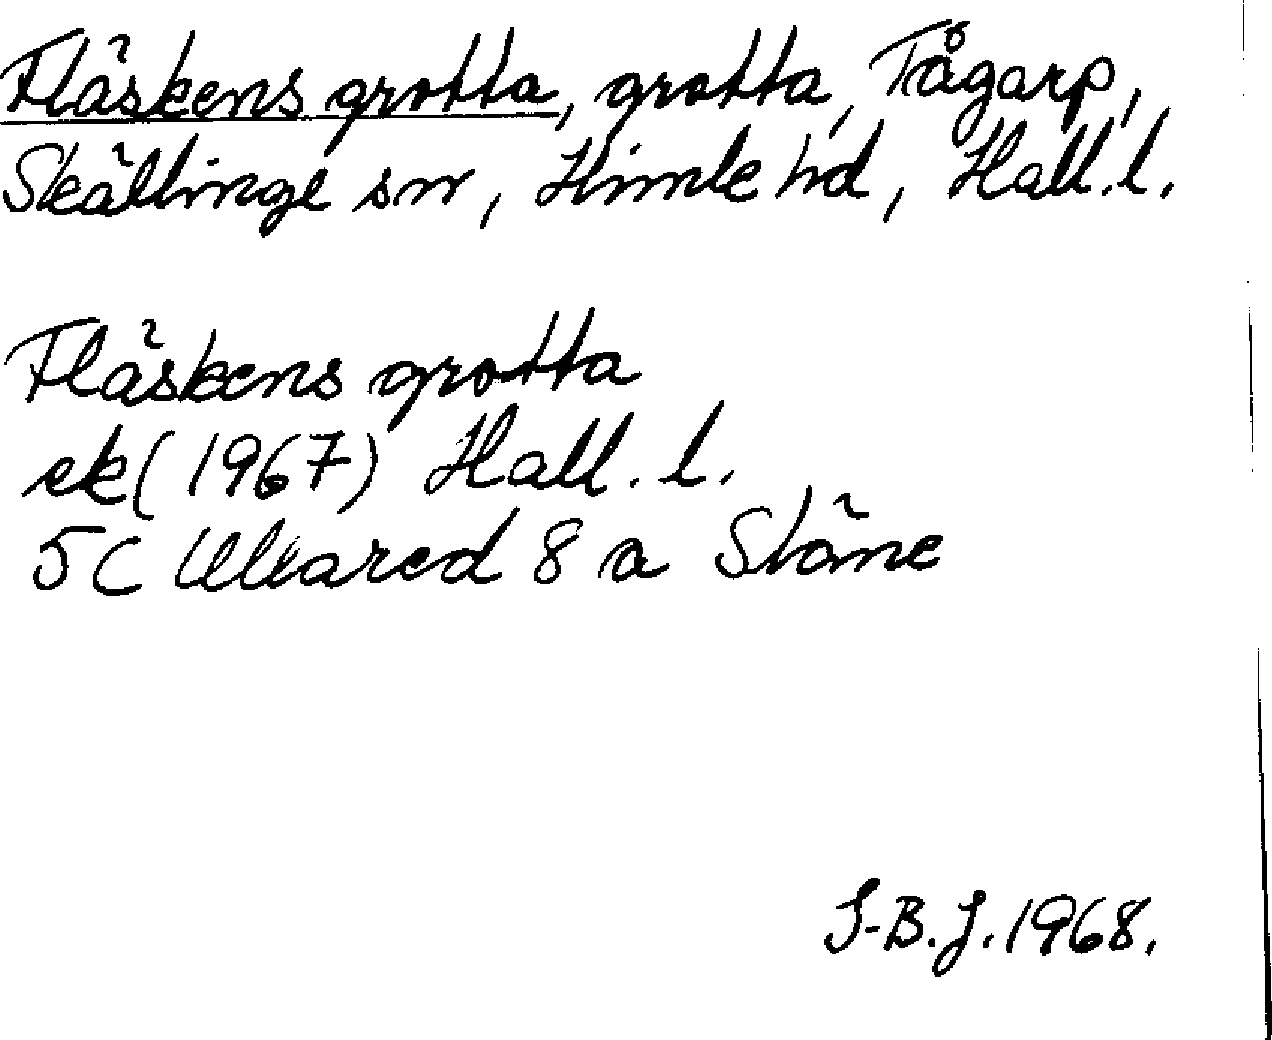 Fläskens grotta, grotta, Tågarp,
Skällinge sn, Himle hd, Hall. l.
Fläskens grotta
ek (1967) Hall. l.
5C Ullared 8 a Stäme
S-B. J. 1968.